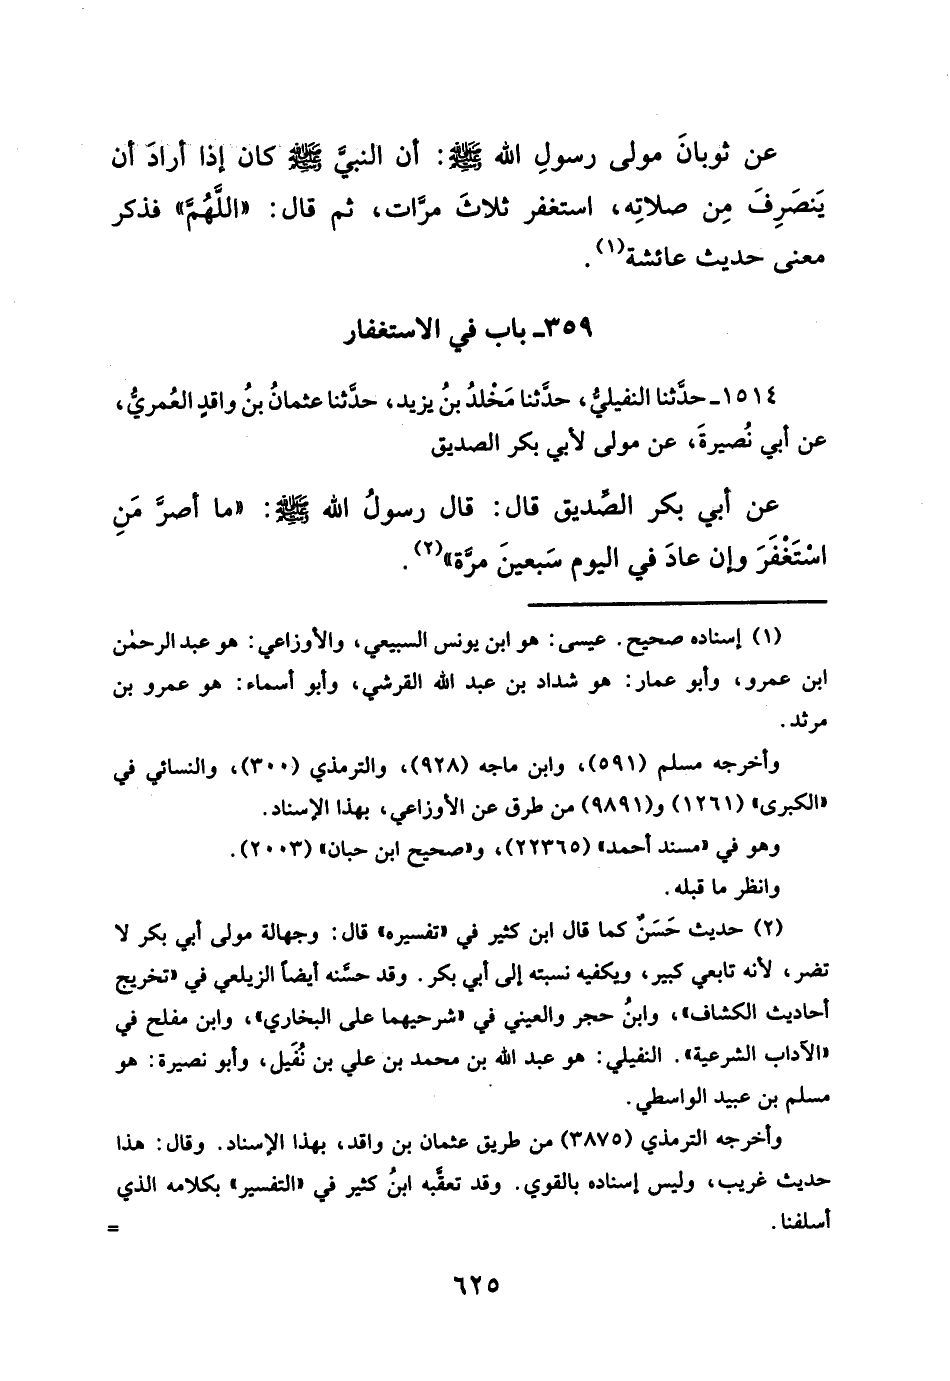 عن ثوبانَ مولى رسولِ الله ﷺ: أن النبيَّ ﷺ كان إذا أرادَ أن
يَنصَرِفَ مِن صلاتِه، استغفر ثلاثَ مرَّات، ثم قال: «اللَّهُمَّ» فذكر
معنى حديث عائشة(١).
٣٥٩ـ باب في الاستغفار
١٥١٤ـ حدَّثنا النفيليُّ، حدَّثنا مَخْلدُ بنُ يزيد، حدَّثنا عثمانُ بنُ واقدٍ العُمريُّ،
عن أبي نُصيرةَ، عن مولى لأبي بكر الصديق
عن أبي بكر الصِّديق قال: قال رسولُ الله ﷺ: «ما أصرَّ مَنِ
اسْتَغْفَرَ وإن عادَ في اليوم سَبعينَ مرَّة»(٢).
(١) إسناده صحيح. عيسى: هو ابن يونس السبيعي، والأوزاعي: هو عبد الرحمٰن
ابن عمرو، وأبو عمار: هو شداد بن عبد الله القرشي، وأبو أسماء: هو عمرو بن
مرثد.
وأخرجه مسلم (٥٩١)، وابن ماجه (٩٢٨)، والترمذي (٣٠٠)، والنسائي في
«الكبرى» (١٢٦١) و(٩٨٩١) من طرق عن الأوزاعي، بهذا الإسناد.
وهو في «مسند أحمد» (٢٢٣٦٥)، و«صحيح ابن حبان» (٢٠٠٣).
وانظر ما قبله.
(٢) حديث حَسَنٌ كما قال ابن كثير في «تفسيره» قال: وجهالة مولى أبي بكر لا
تضر، لأنه تابعي كبير، ويكفيه نسبته إلى أبي بكر. وقد حسَّنه أيضاً الزيلعي في «تخريج
أحاديث الكشاف»، وابنُ حجر والعيني في «شرحيهما على البخاري»، وابن مفلح في
«الآداب الشرعية». النفيلي: هو عبد الله بن محمد بن علي بن نُفَيل، وأبو نصيرة: هو
مسلم بن عبيد الواسطي.
وأخرجه الترمذي (٣٨٧٥) من طريق عثمان بن واقد، بهذا الإسناد. وقال: هذا
حديث غريب، وليس إسناده بالقوي. وقد تعقَّبه ابنُ كثير في «التفسير» بكلامه الذي
أسلفنا. =
٦٢٥